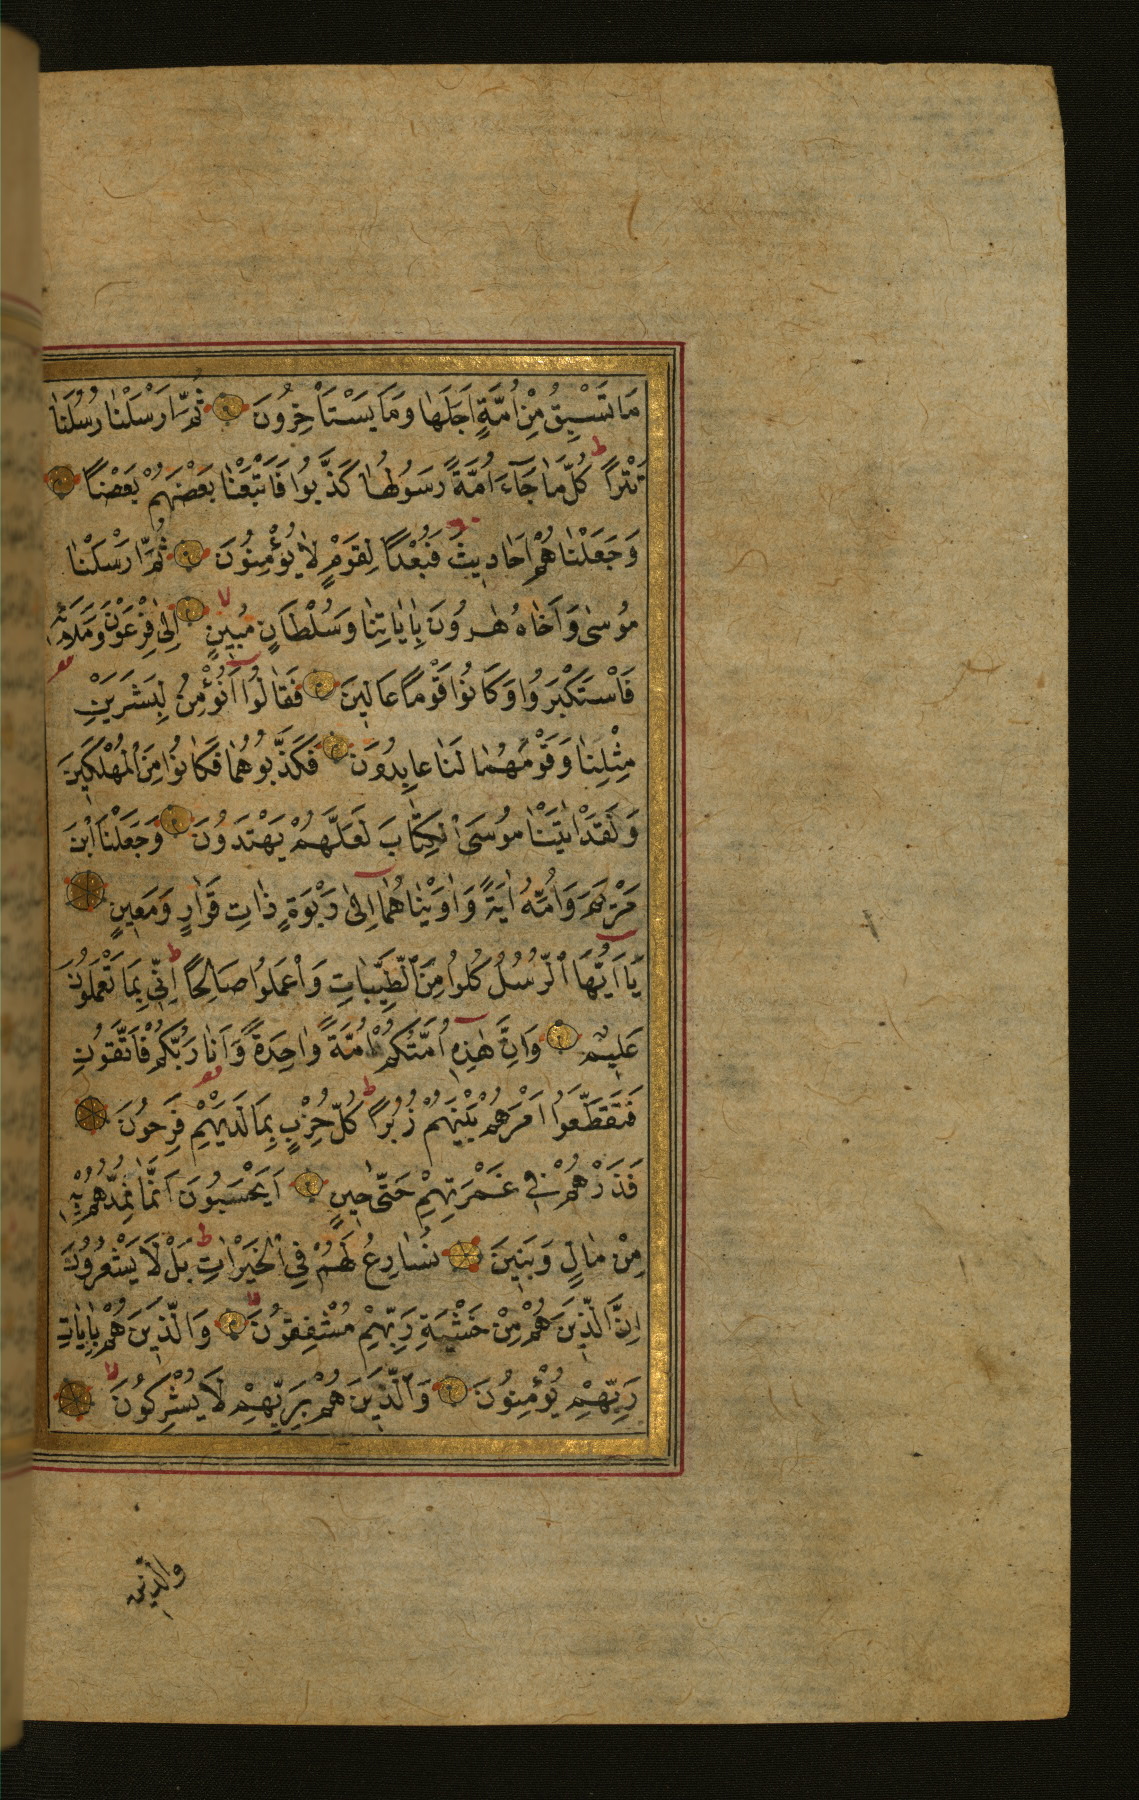 مَا تَسْبِقُ مِنْ اُمَّةٍ اَجَلَهَا وَمَا يَسْتَأْخِرُونَ ثُمَّ اَرْسَلْنَا رُسُلَنَا
تَتْرًا ط كُلَّ مَا جَآءَ اُمَّةً رَسُولُهَا كَذَّبُوا فَاَتْبَعْنَا بَعْضَهُمْ بَعْضًا
وَجَعَلْنَاهُمْ اَحَادِيثَ فَبُعْدًا لِقَوْمٍ لَا يُؤْمِنُونَ ثُمَّ اَرْسَلْنَا
مُوسٰى وَاَخَاهُ هٰرُونَ بِاٰيَاتِنَا وَسُلْطَانٍ مُبِينٍ لا اِلٰى فِرْعَوْنَ وَمَلَائِهِ
فَاسْتَكْبَرُوا وَكَانُوا قَوْمًا عَالِينَ فَقَالُوا اَنُؤْمِنُ لِبَشَرَيْنِ
مِثْلِنَا وَقَوْمُهُمَا لَنَا عَابِدُونَ فَكَذَّبُوهُمَا فَكَانُوا مِنَ الْمُهْلَكِينَ
وَلَقَدْ اٰتَيْنَا مُوسَى الْكِتَابَ لَعَلَّهُمْ يَهْتَدُونَ وَجَعَلْنَا ابْنَ
مَرْيَمَ وَاُمَّهُ اٰيَةً وَاٰوَيْنَاهُمَا اِلٰى رَبْوَةٍ ذَاتِ قَرَارٍ وَمَعِينٍ
يَا اَيُّهَا الرُّسُلُ كُلُوا مِنَ الطَّيِّبَاتِ وَاعْمَلُوا صَالِحًا ط اِنِّي بِمَا تَعْمَلُونَ
عَلِيمٌ وَاِنَّ هٰذِهِ اُمَّتُكُمْ اُمَّةً وَاحِدَةً وَاَنَا رَبُّكُمْ فَاتَّقُونِ
فَتَقَطَّعُوا اَمْرَهُمْ بَيْنَهُمْ زُبُرًا ط كُلُّ حِزْبٍ بِمَا لَدَيْهِمْ فَرِحُونَ
فَذَرْهُمْ فِي غَمْرَتِهِمْ حَتّٰى حِينٍ اَيَحْسَبُونَ اَنَّمَا نُمِدُّهُمْ بِهِ
مِنْ مَالٍ وَبَنِينَ نُسَارِعُ لَهُمْ فِي الْخَيْرَاتِ ط بَلْ لَا يَشْعُرُونَ
اِنَّ الَّذِينَ هُمْ مِنْ خَشْيَةِ رَبِّهِمْ مُشْفِقُونَ لا وَالَّذِينَ هُمْ بِاٰيَاتِ
رَبِّهِمْ يُؤْمِنُونَ وَالَّذِينَ هُمْ بِرَبِّهِمْ لَا يُشْرِكُونَ لا
والذين